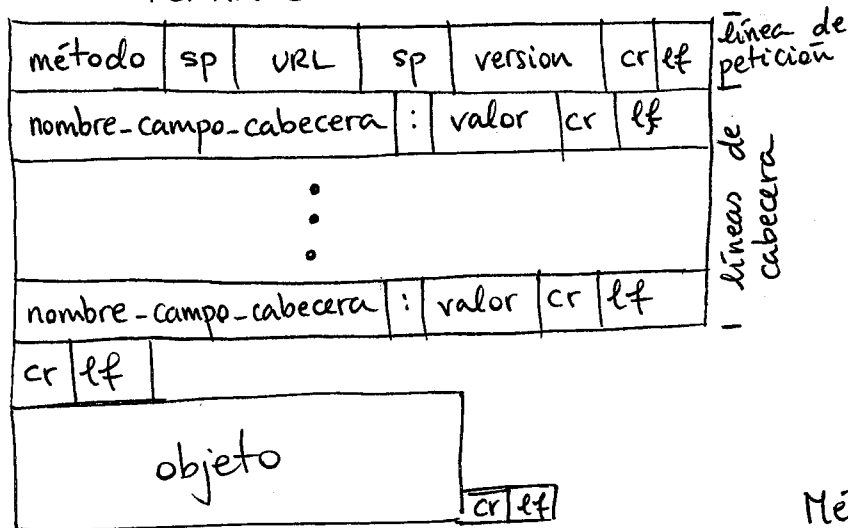 método sp URL sp version cr lf
línea de
petición
nombre-campo-cabecera : valor cr lf
líneas de
cabecera
nombre-campo-cabecera : valor cr lf
cr lf
objeto
cr lf